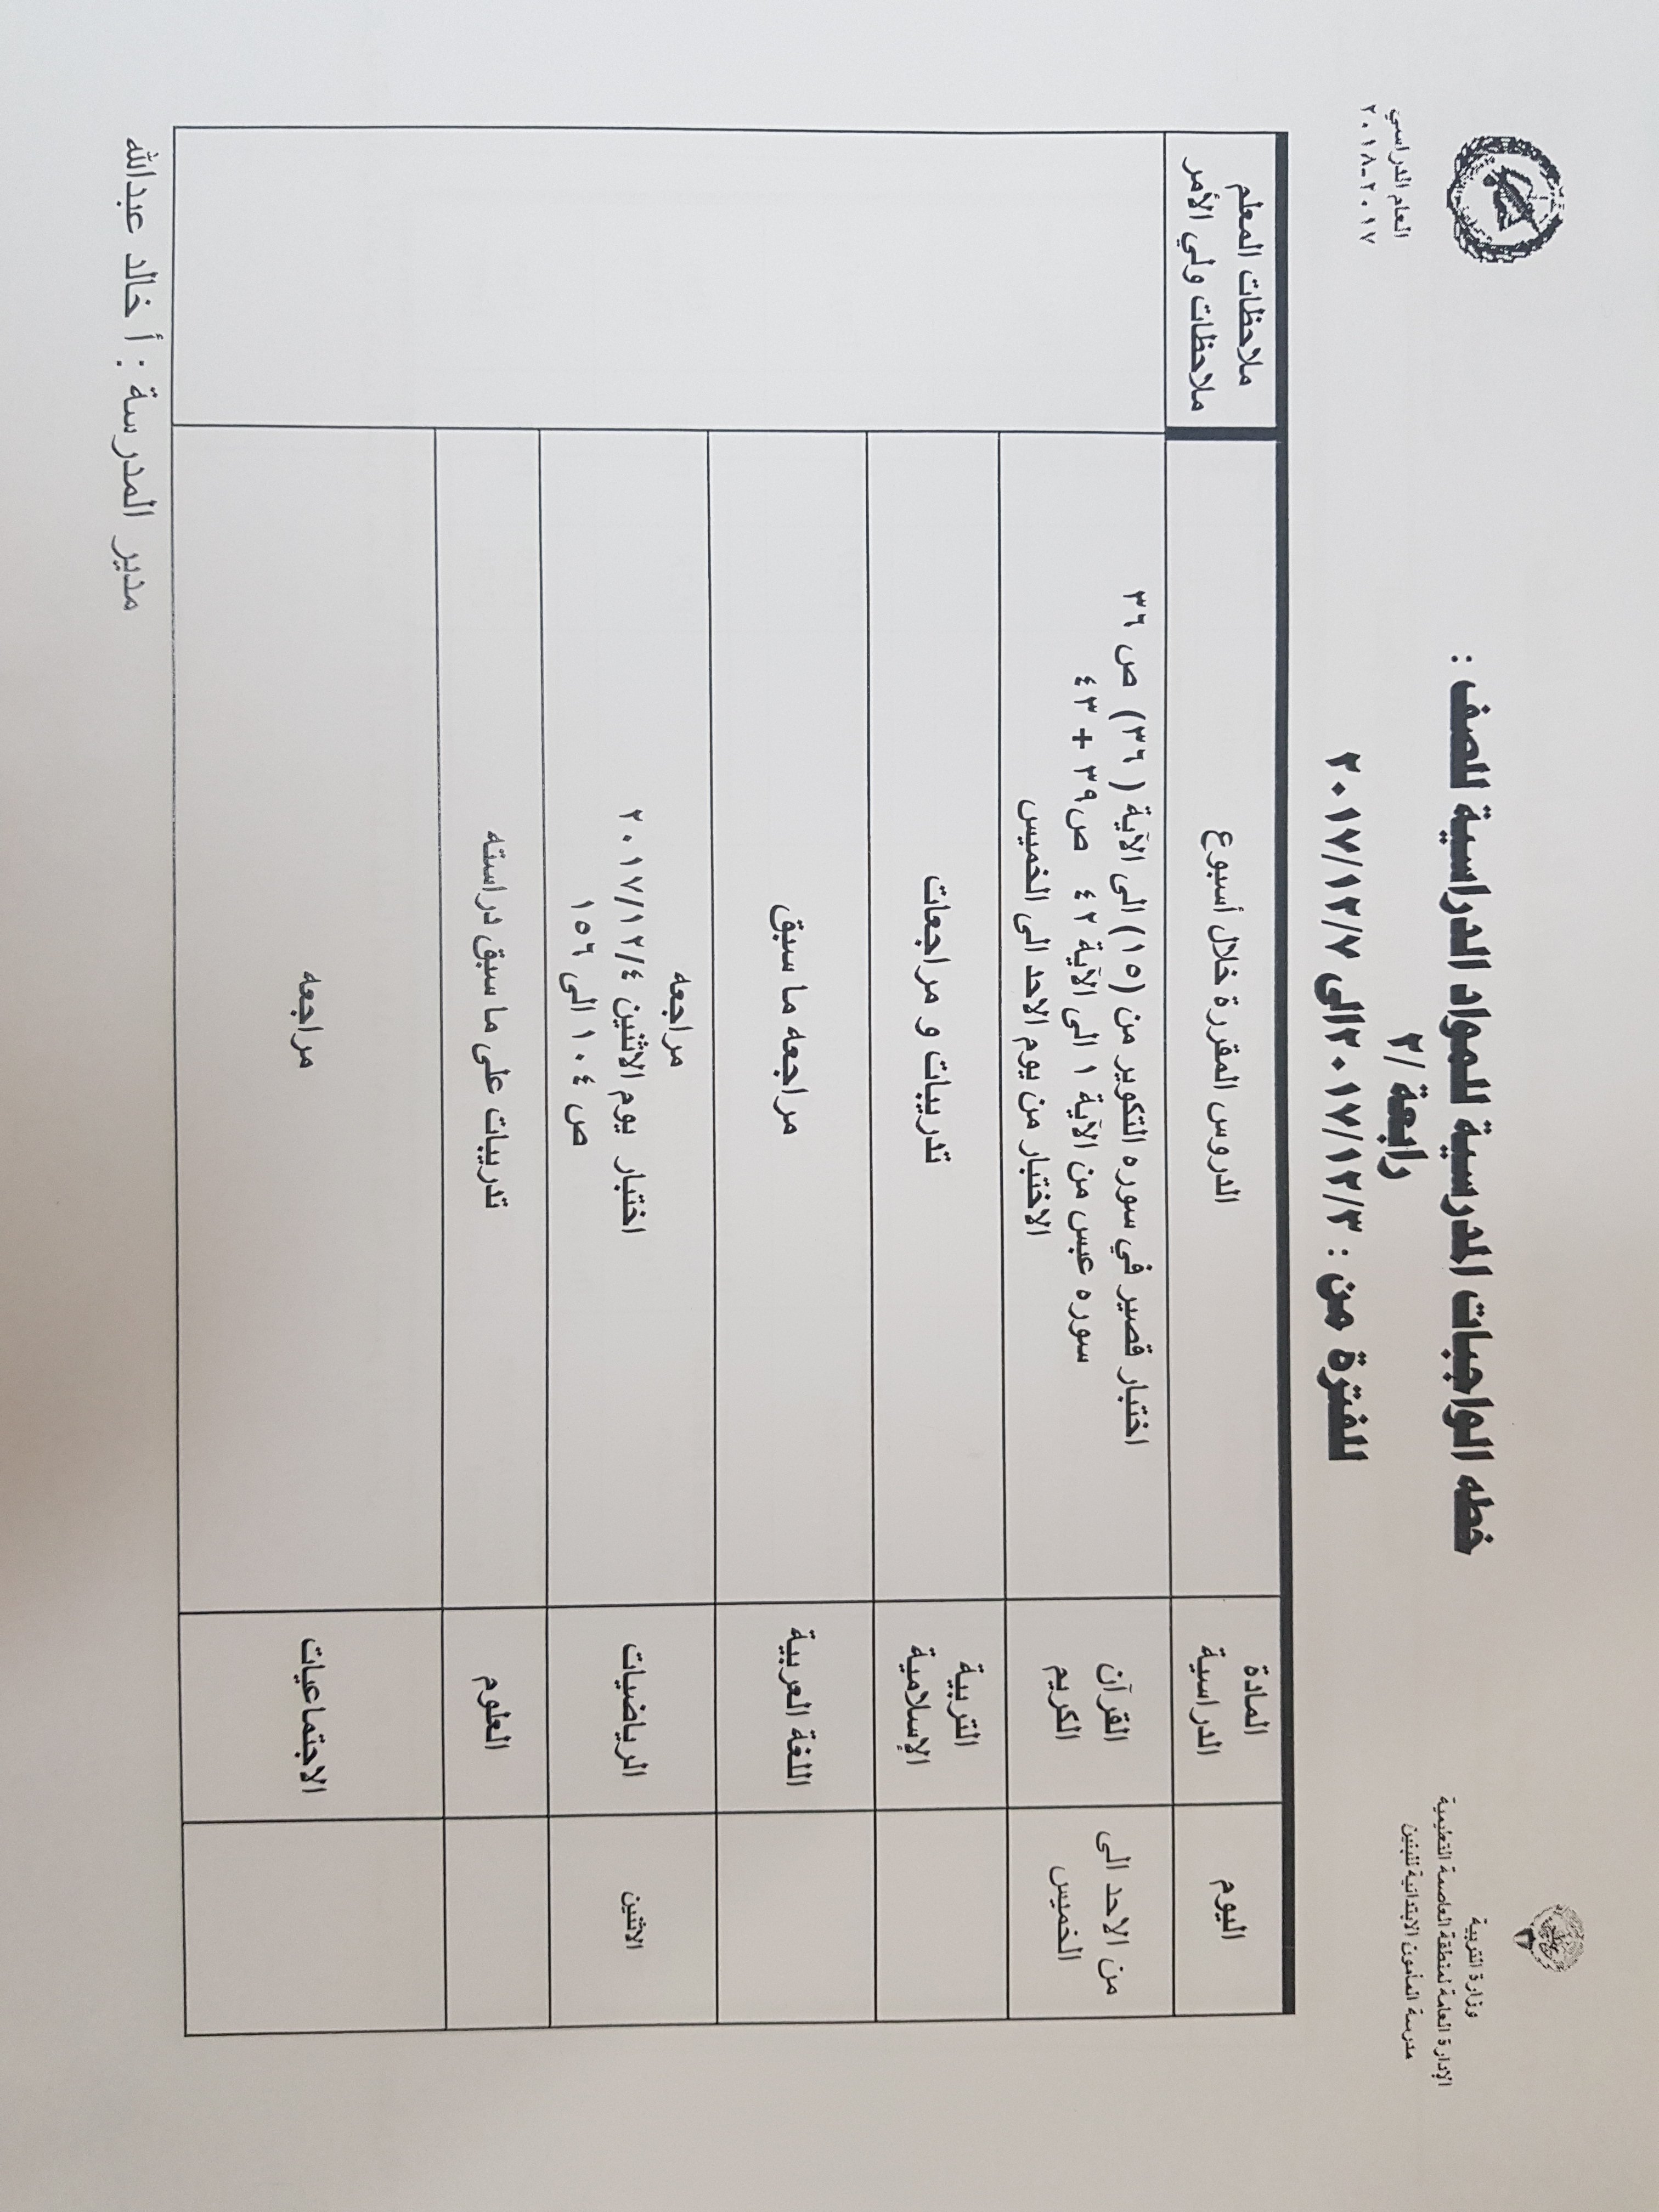 وزارة التربية
الإدارة العامة لمنطقة العاصمة التعليمية
مدرسة المأمون الابتدائية للبنين
العام الدراسي
٢٠١٨-٢٠١٧
خطه الواجبات المدرسية للمواد الدراسية للصف :
رابعة /٢
للفترة من : ٢٠١٧/١٢/٣الى ٢٠١٧/١٢/٧
اليوم
المادة
الدراسية
الدروس المقررة خلال أسبوع
ملاحظات المعلم
ملاحظات ولي الأمر
من الاحد الى
الخميس
القرآن
الكريم
اختبار قصير في سوره التكوير من (١٥) الى الآية ( ٣٦) ص ٣٦
سوره عبس من الآية ١ الى الآية ٤٢ ص٣٩ + ٤٣
الاختبار من يوم الاحد الى الخميس
التربية
الإسلامية
تدريبات و مراجعات
اللغة العربية
مراجعه ما سبق
الاثنين
الرياضيات
مراجعه
اختبار يوم الاثنين ٢٠١٧/١٢/٤
ص ١٠٤ الى ١٥٦
العلوم
تدريبات على ما سبق دراسته
الاجتماعيات
مراجعه
مدير المدرسة : أ خالد عبدالله